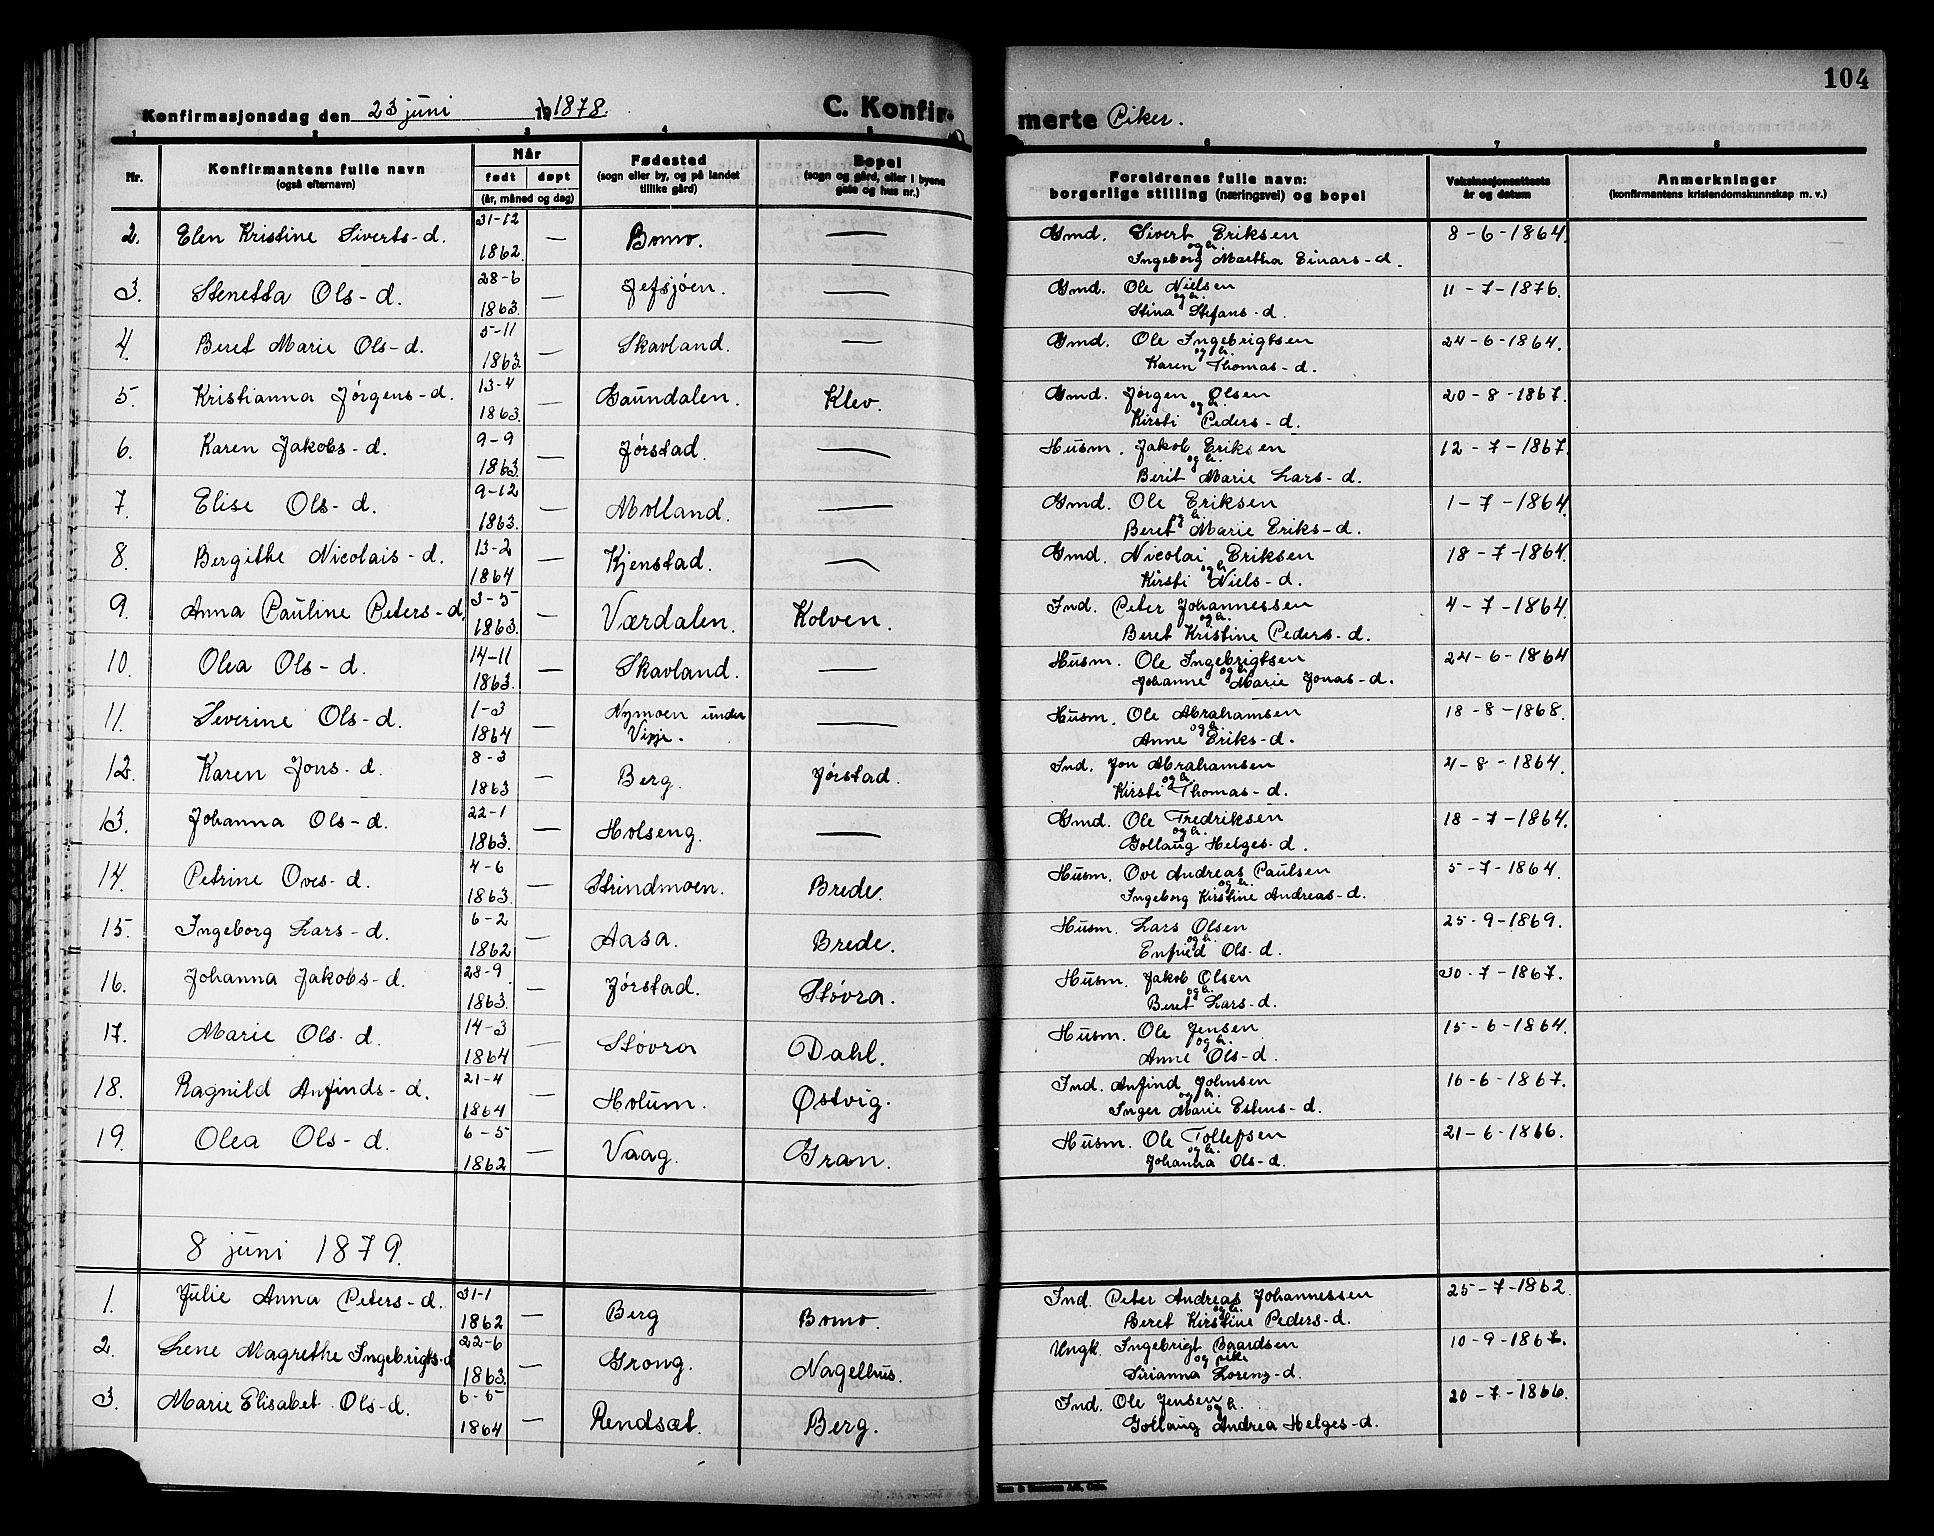 104
Konfirmasjonsdag den 23 juni 1878. C. Konfir- merte Piker.
1 2 3 4 5 6 7 8
Nr. Konfirmantens fulle navn (også efternavn) Når født døpt (år, måned og dag) Fødested (sogn eller by, og på landet tillike gård) Bopel (sogn og gård, eller i byene gate og hus nr.) Foreldrenes fulle navn: borgerlige stilling (næringsvei) og bopel Vaksinasjonsattests år og datum Anmerkninger (konfirmantens kristendomskunnskap m. v.)
2. Elen Kristine Siverts-d. 31-12 1862. — Bomo. — Gmd. Sivert Eriksen og h. Ingeborg Martha Einars-d. 8-6-1864.
3. Stenetta Ols-d. 28-6 1863. — Jefsjøen. — Gmd. Ole Nielsen og h. Stina Stefans-d. 11-7-1876.
4. Beret Marie Ols-d. 5-11 1863. — Skavland. — Gmd. Ole Ingebrigtsen og h. Karen Thomas-d. 24-6-1864.
5. Kristianna Jørgens-d. 13-4 1863. — Gaundalen. Klev. Gmd. Jørgen Olsen og h. Kirsti Peders-d. 20-8-1867.
6. Karen Jakobs-d. 9-9 1863. — Jørstad. — Husm. Jakob Eriksen og h. Berit Marie Lars-d. 12-7-1867.
7. Elise Ols-d. 9-12 1863. — Molland. — Gmd. Ole Eriksen og h. Beret Marie Eriks-d. 1-7-1864.
8. Bergithe Nicolais-d. 13-2 1864 — Kjenstad. — Gmd. Nicolai Eriksen og h. Kirsti Niels-d. 18-7-1864.
9. Anna Pauline Peters-d. 3-5 1863. — Værdalen. Kolven. Ind. Peter Johannessen og h. Beret Kristine Peders-d. 4-7-1864.
10. Olea Ols-d. 14-11 1863. — Skavland. — Husm. Ole Ingebrigtsen og h. Johanne Marie Jonas-d. 24-6-1864
11. Severine Ols-d. 1-3 1864 — Nymoen under — Husm. Ole Abrahamsen og h. Anne Eriks-d. 18-8-1868.
12. Karen Jons-d. 8-3 1863 — Berg. Jørstad. Ind. Jon Abrahamsen og h. Kirsti Thomas-d. 4-8-1864.
13. Johanna Ols-d. 22-1 1863. — Holseng. — Gmd. Ole Fredriksen og h. Gollaug Helges-d. 18-7-1864.
14. Petrine Oves-d. 4-6 1863. — Strindmoen. Brede. Husm. Ove Andreas Paulsen og h. Ingeborg Kirstine Andreas-d. 5-7-1864.
15. Ingeborg Lars-d. 6-2 1862 — Aasa. Brede. Husm. Lars Olsen og h. Enfred Ols-d. 25-9-1869.
16. Johanna Jakobs-d. 28-9. 1863. — Jørstad. Støvra. Husm. Jakob Olsen og h. Beret Lars-d. 30-7-1867.
17. Marie Ols-d. 14-3 1864 — Støvra Dahl. Husm. Ole Jensen og h. Anne Ols-d. 15-6-1864.
18. Ragnild Anfinds-d. 21-4 1864 — Holum. Østvig. Ind. Anfind Johnsen og h. Inger Marie Estens-d. 16-6-1867.
19. Olea Ols-d. 6-5 1862 — Vaag. Gran. Husm. Ole Tollefsen og h. Johanna Ols-d. 21-6-1866.
8 juni 1879.
1. Julie Anna Peters-d. 31-1 1862 — Berg Bomo. Ind. Peter Andreas Johannessen og h. Beret Kirstine Peders-d. 25-7-1862.
2. Lene Magrethe Ingebrigts-d 22-6 1863. — Grong. Nagelhus. Ungk. Ingebrigt Baardsen og pike Sirianna Lorenz-d. 10-9-1867.
3. Marie Elisabet Ols-d. 6-5 1864 — Rendsæt. Berg. Ind. Ole Jensen og h. Gollaug Andrea Helges-d. 20-7-1866.